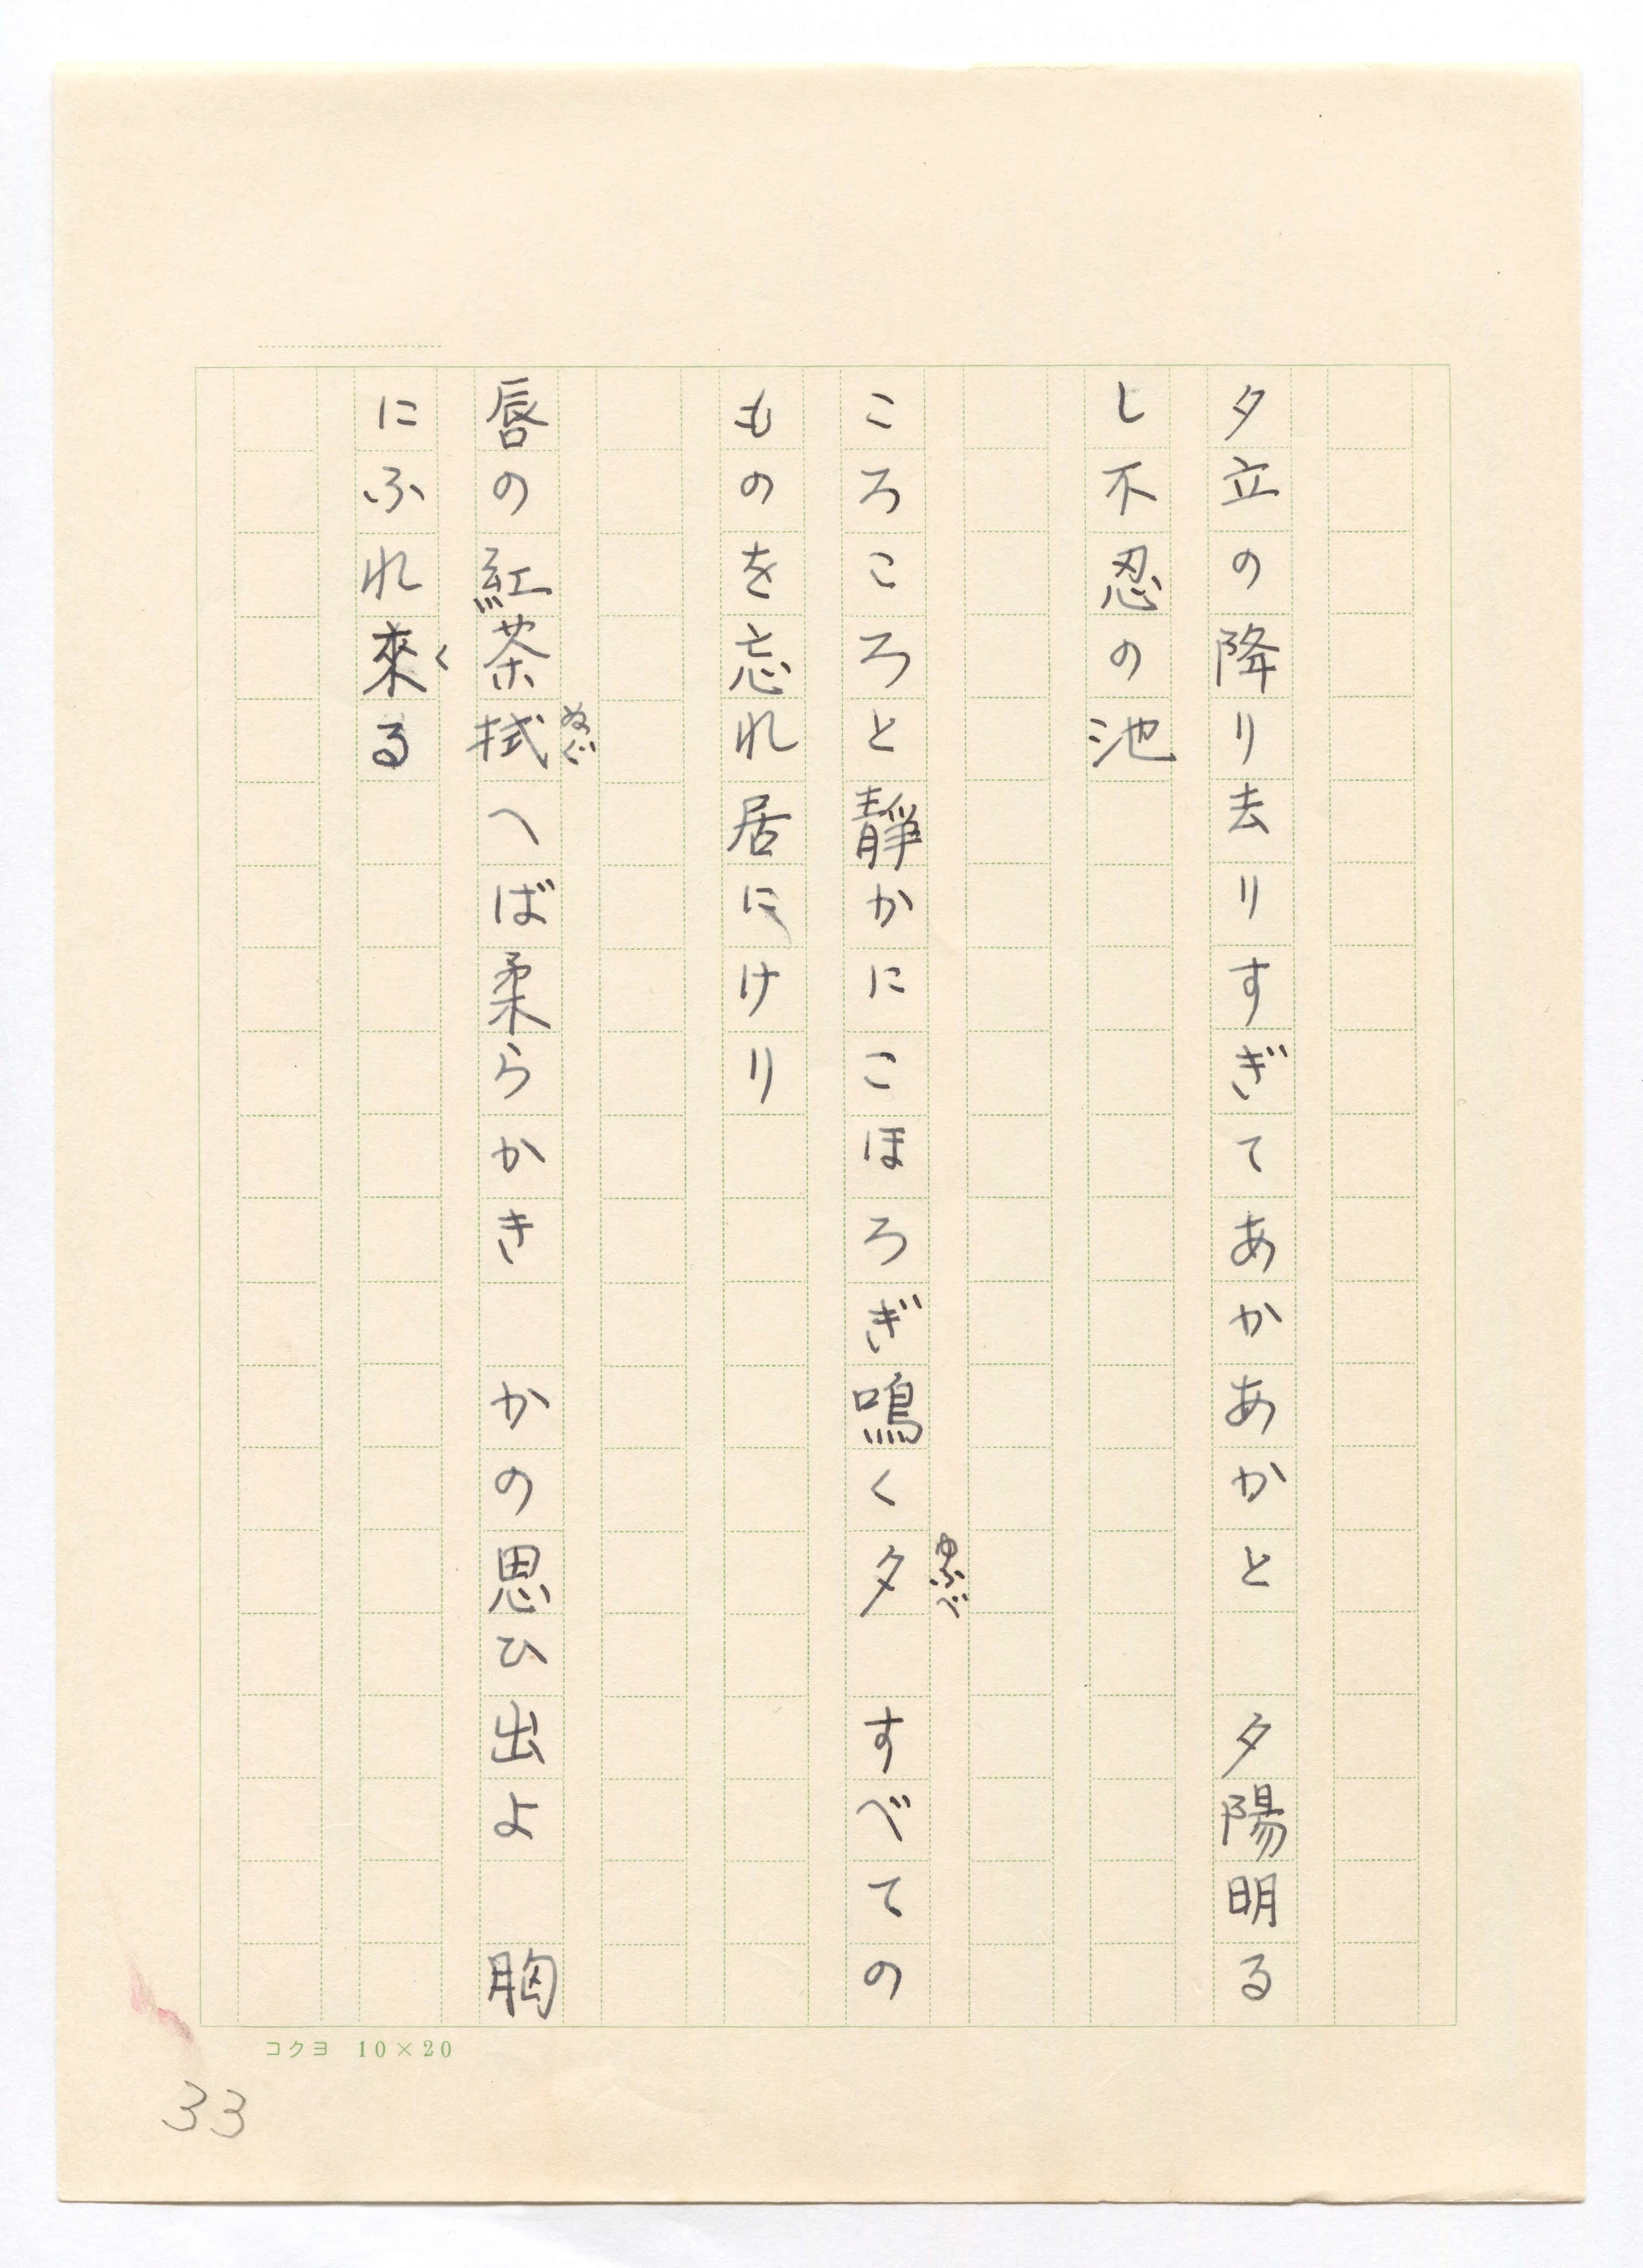 夕立の降り去りすぎてあかあかと　夕陽明る
し不忍の池
ころころと靜かにこほろぎ鳴く夕　すべての
ゆふべ
ものを忘れ居にけり
唇の紅茶拭へば柔らかき　かの思ひ出よ　胸
ぬぐ
にふれ來る
く
コクヨ 10×20
33